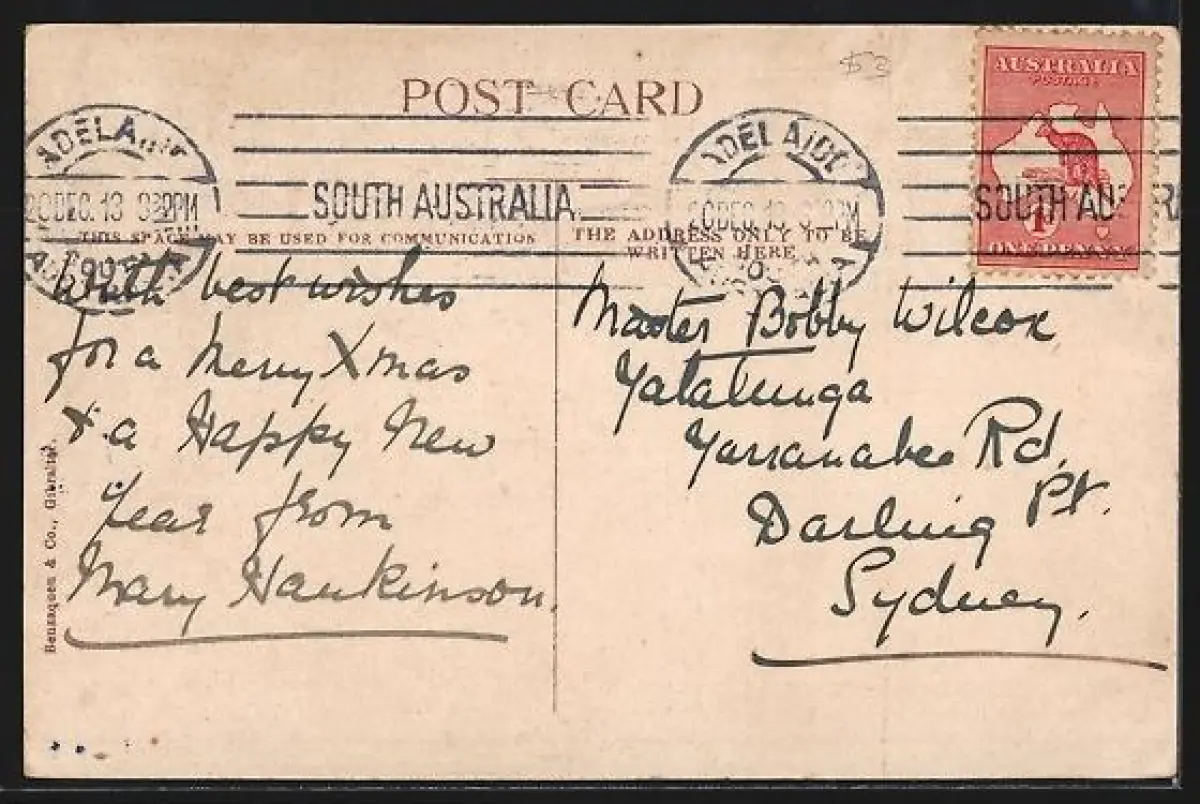 $3
POST CARD
AUSTRALIA
POSTAGE
1D
ONE PENNY
ADELAIDE
20 DEC. 13
SOUTH AUSTRALIA
ADELAIDE
20 DEC. 13
SOUTH AUSTRALIA
THIS SPACE MAY BE USED FOR COMMUNICATION
THE ADDRESS ONLY TO BE
WRITTEN HERE
With best wishes
for a Merry Xmas
& a Happy New
Year from
Mary Hankinson.
Master Bobby Wilcox
Yatalunga
Yarranabee Rd.
Darling Pt.
Sydney.
Benzaquen & Co., Gibraltar.